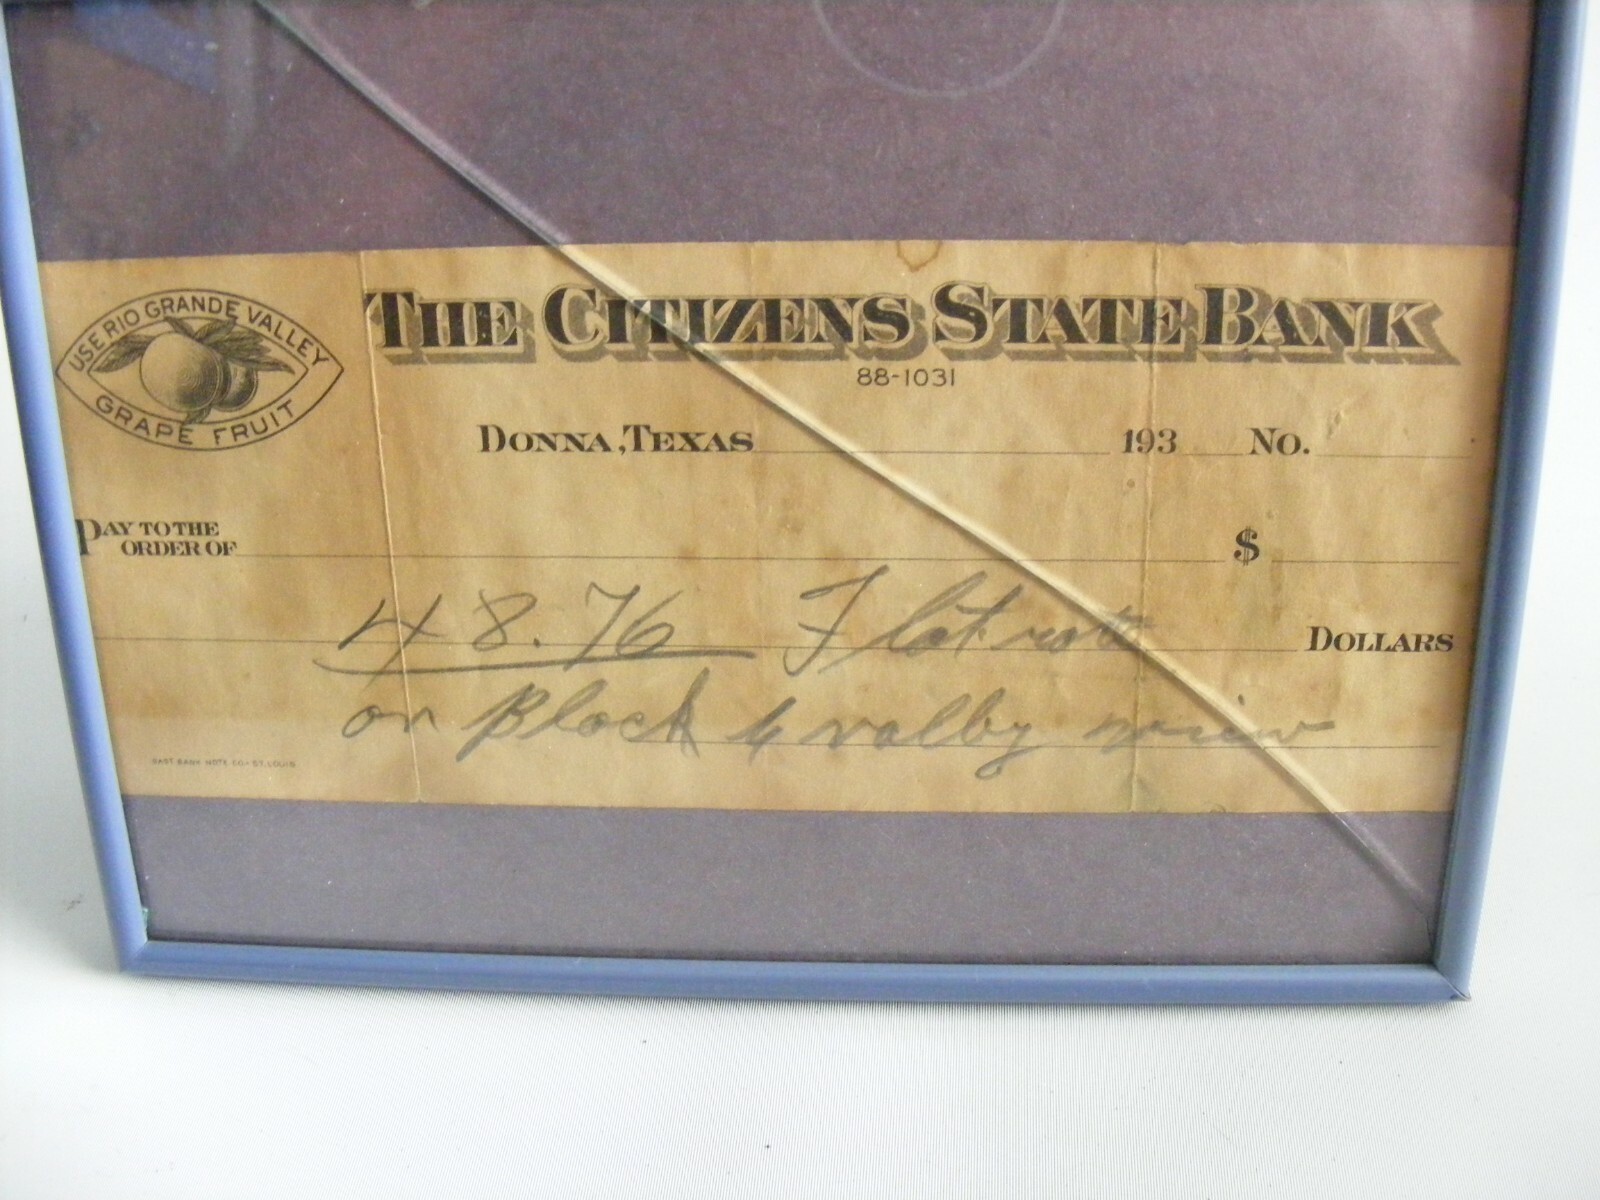 USE RIO GRANDE VALLEY
GRAPE FRUIT
THE CITIZENS STATE BANK
88-1031
DONNA, TEXAS 193 NO.
PAY TO THE
ORDER OF $
48.76 Flat rate
DOLLARS
on Block 4 valley
EAST. BANK NOTE CO. ST. LOUIS